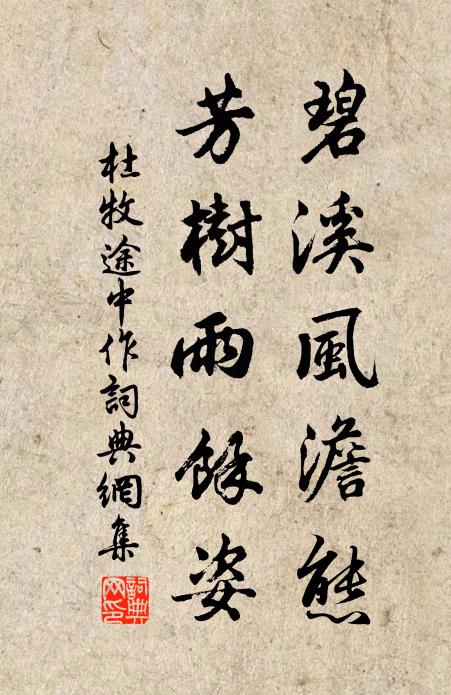 碧溪風澹態
芳樹雨餘姿
杜牧途中作詞典網集
詞典
网印